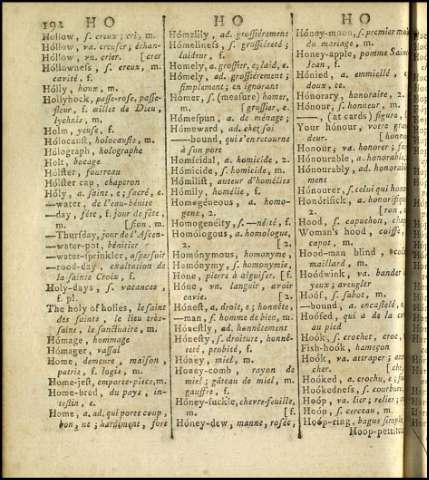 192 H O H O H O
Hollow, s. creux; cri, m.
Hollow, va. creuser; échan-
Hollow, va. crier. [crer
Hollowness, s. creux, m.
cavité, f.
Hólly, houx, m.
Hollyhock, passe-rose, passe-
fleur, f. œillet de Dieu,
lychnis, m.
Holm, yeuse, f.
Hólocaust, holocauste, m.
Hólograph, holographe
Holt, bocage
Hólster, fourreau
Hólster cap, chaperon
Hóly, a. saint, e; sacré, e.
—water, de l'eau-bénite
—day, fête, f. jour de fête,
m. [sion. m.
—Thursday, jour de l'Ascen-
—water-pot, bénitier
—water-sprinkler, aspersoir
—rood-day, exaltation de
la sainte Croix, f.
Holy-days, s. vacances,
f. pl.
The holy of holies, le saint
des saints, le lieu très-
saint, le sanctuaire, m.
Hómage, hommage
Hómager, vassal
Home, demeure, maison,
patrie, f. logis, m.
Home-jest, emporte-piece, m.
Home-bred, du pays, in-
testin, e.
Home, a. ad. qui porte coup,
bon, ne; hardiment, fort
Hómelily, ad. grossiérement
Hómeliness, s. grossiéreté;
laideur, f.
Homely, a. grossier, e; laid, e.
Hómely, ad. grossiérement;
simplement; en ignorant
Homer, s. (measure) homer,
m. [grossier, e.
Hómespun, a. de ménage;
Hómeward, ad. chez soi
—bound, qui s'en retourne
à son port
Homicídal, a. homicide, 2.
Hómicide, s. homicide, m.
Hómilist, auteur d'homélies
Hómily, homélie, f.
Homogéneous, a. homo-
gene, 2.
Homogenéity, s. —néité, f.
Homólogous, a. homologue,
2. [2.
Homónymous, homonyme,
Homónymy, s. homonymie,
Hone, pierre à aiguiser, [f.
Hóne, va. languir, avoir
envie. [2.
Hónest, a. droit, e; honnête,
—man, s. homme de bien, m.
Hónestly, ad. honnêtement
Hónesty, s. droiture, honnê-
teté, probité, f.
Hóney, miel, m.
Hóney-comb, rayon de
miel; gâteau de miel, m.
gauffre, f.
Hóney-suckle, chevre-feuille,
m. [f.
Hóney-dew, manne, rosée,
Hóney-moon, s. premier mois
du mariage, m.
Honey-apple, pomme Saint
Jean, f.
Hónied, a. emmiellé, e
doux, ce.
Hónorary, honoraire, 2.
Hónour, s. honneur, m.
—, (at cards) figure, f.
Your hónour, votre gran-
deur. [honor
Hónour, va. honorer; fair
Hónourable, a. honorable,
Hónourably, ad. honorable-
ment
Hónourer, s. celui qui honor
Honorífick, a. honorifique
2. [ron,
Hood, s. capuchon, chap
Woman's hood, coiffe,
capot, m.
Hood-man blind, co
maillard, m.
Hoódwink, va. bander
yeux; aveugler
Hoof, s. sabot, m.
—bound, a. encastelé, e
Hoófed, qui a de la co
au pied
Hook, s. crochet, croc,
Fish-hook, hameçon
Hoók, va. attraper; acc
cher. [ch
Hoóked, a. crochu, e; fa
Hoókedness, s. courbure
Hoóp, va. lier; relier; a
Hoóp, s. cerceau, m.
Hoóp-ring, bague simple
Hoop-petticoat